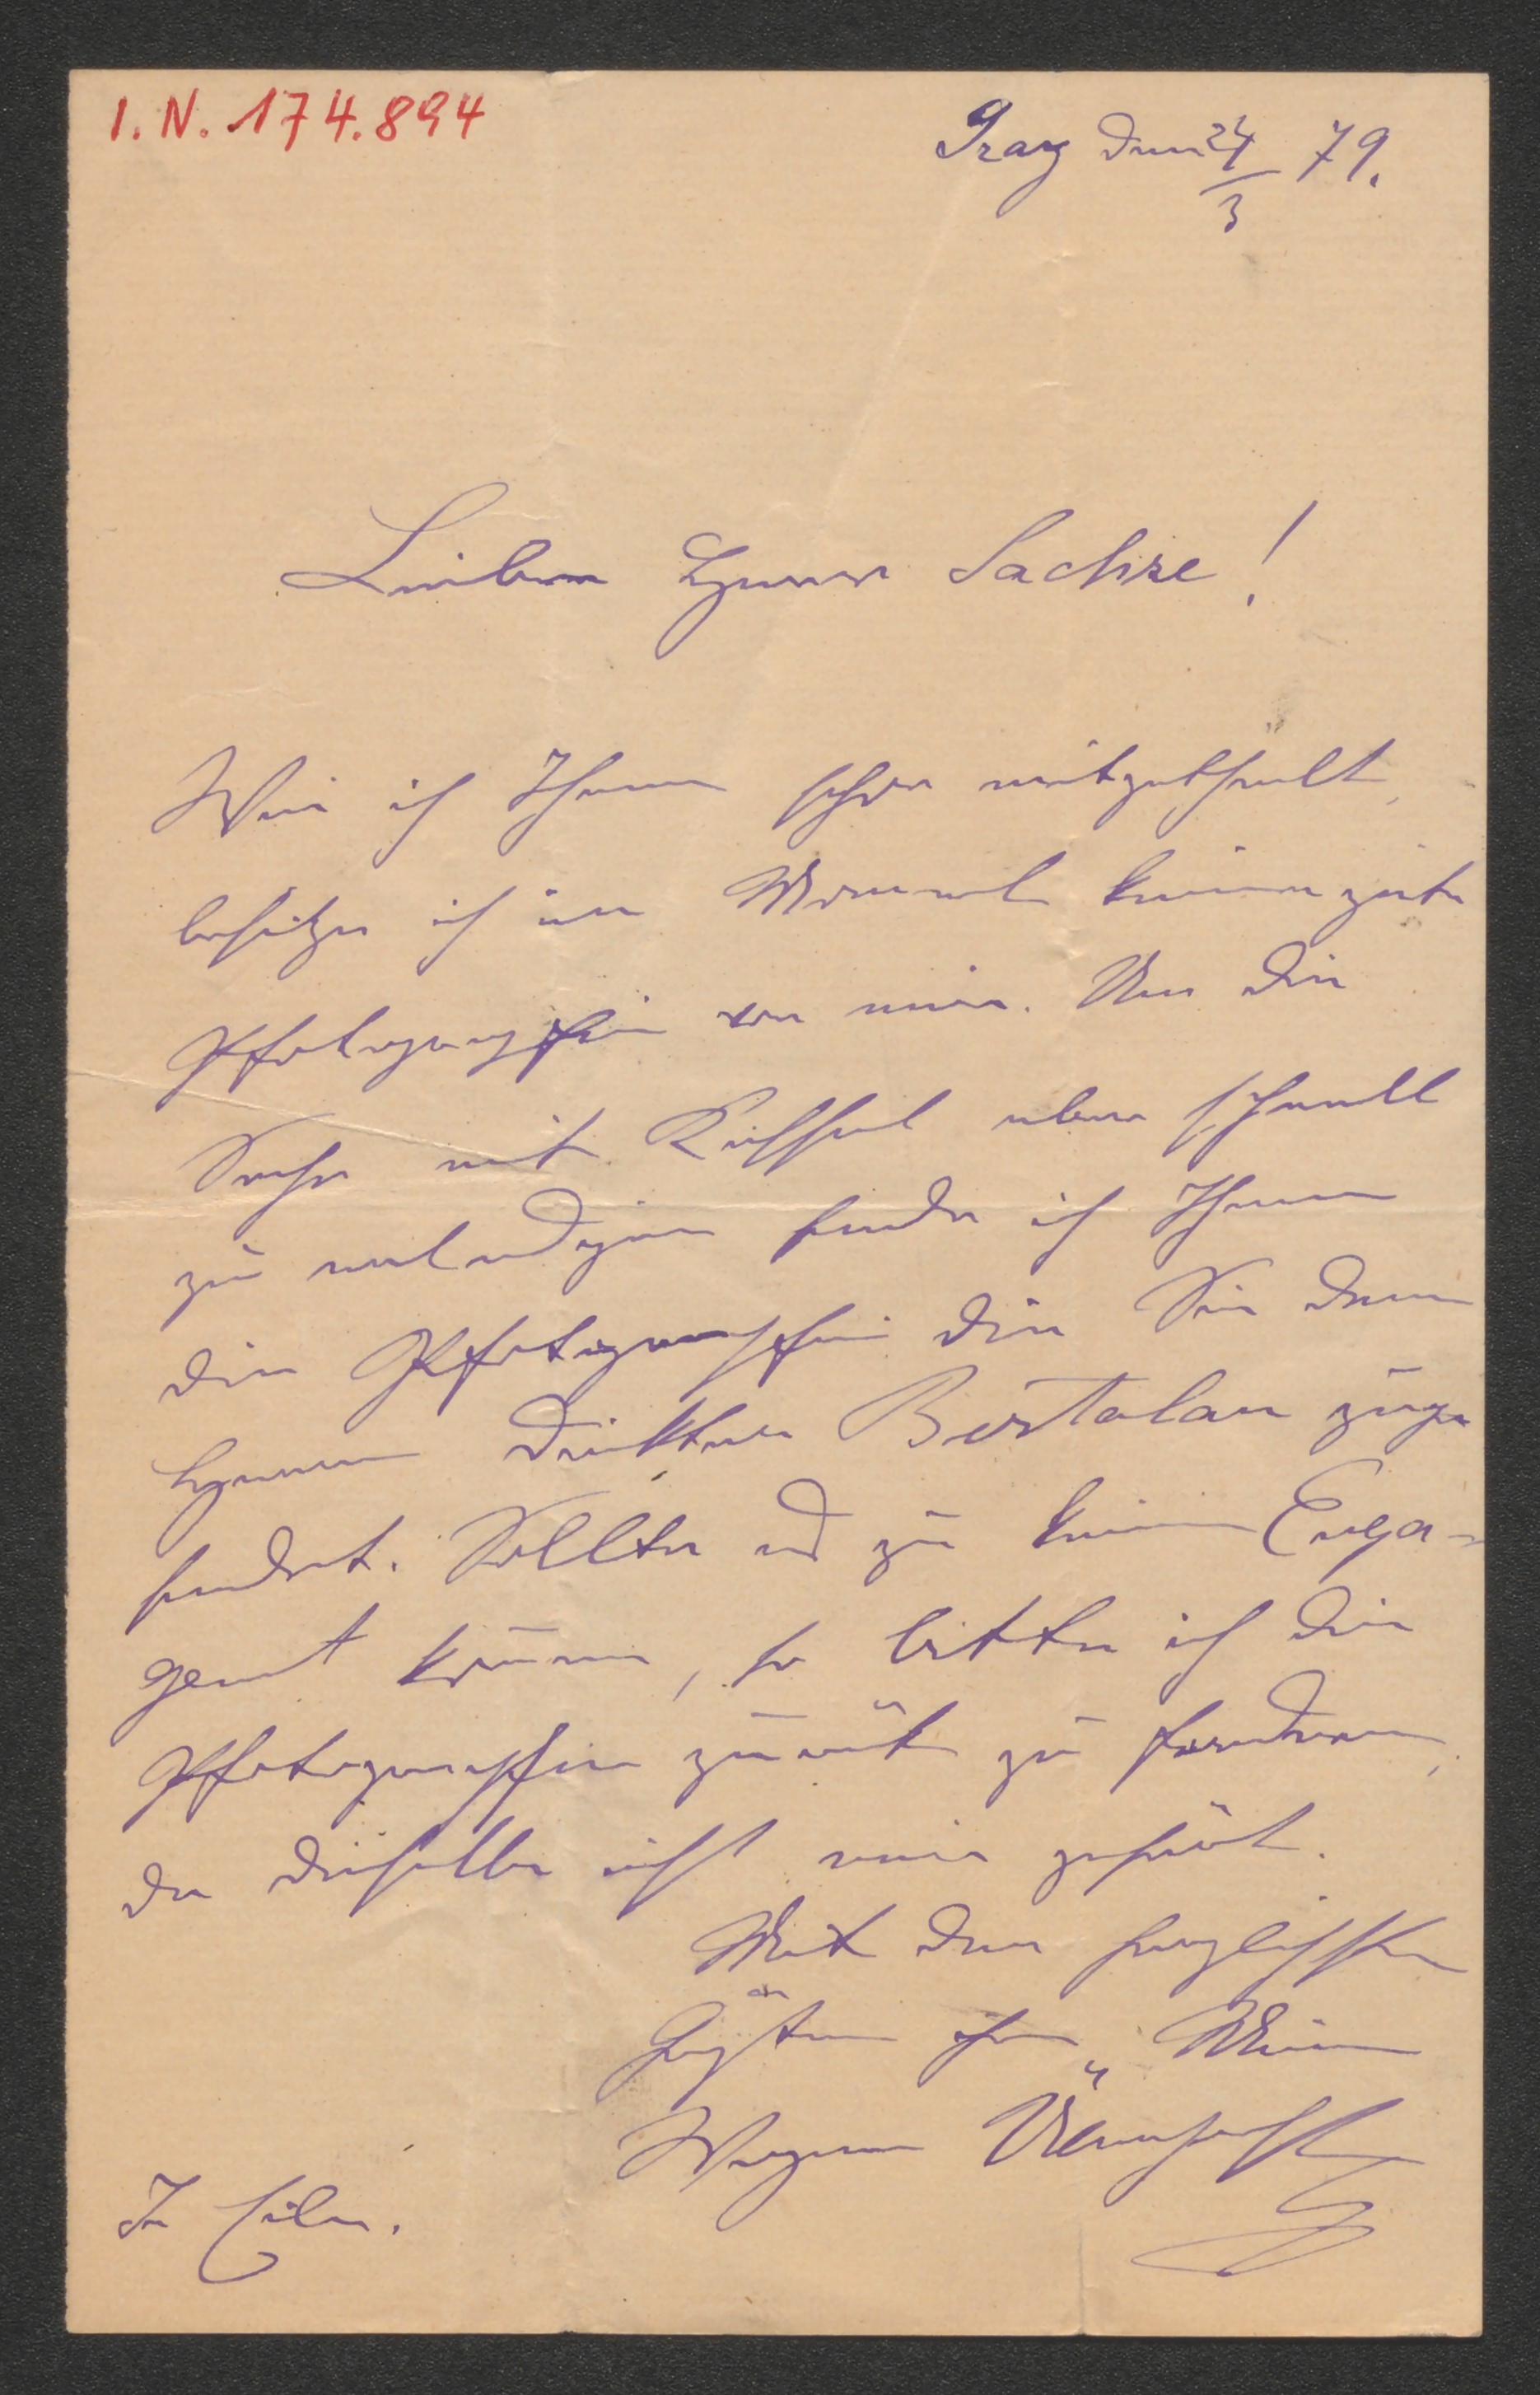 I. N. 174.894
Graz den 24/3 79.
Lieber Herr Sachse!
Wie ich Ihnen schon mitgetheilt,
besitze ich im Moment keine gute
Photographie von mir. Um die
Sache mit aber schnell
zu erledigen sende ich Ihnen
die Photographie die Sie dem
Herrn Direktor Bertalan zuge
sendet. Sollte es zu keinem Enga-
gement kommen, so bitte ich die
Photographie zurück zu fordern,
da dieselbe nicht mir gehört.
Mit den herzlichsten
Grüßen Ihr
In Eile.